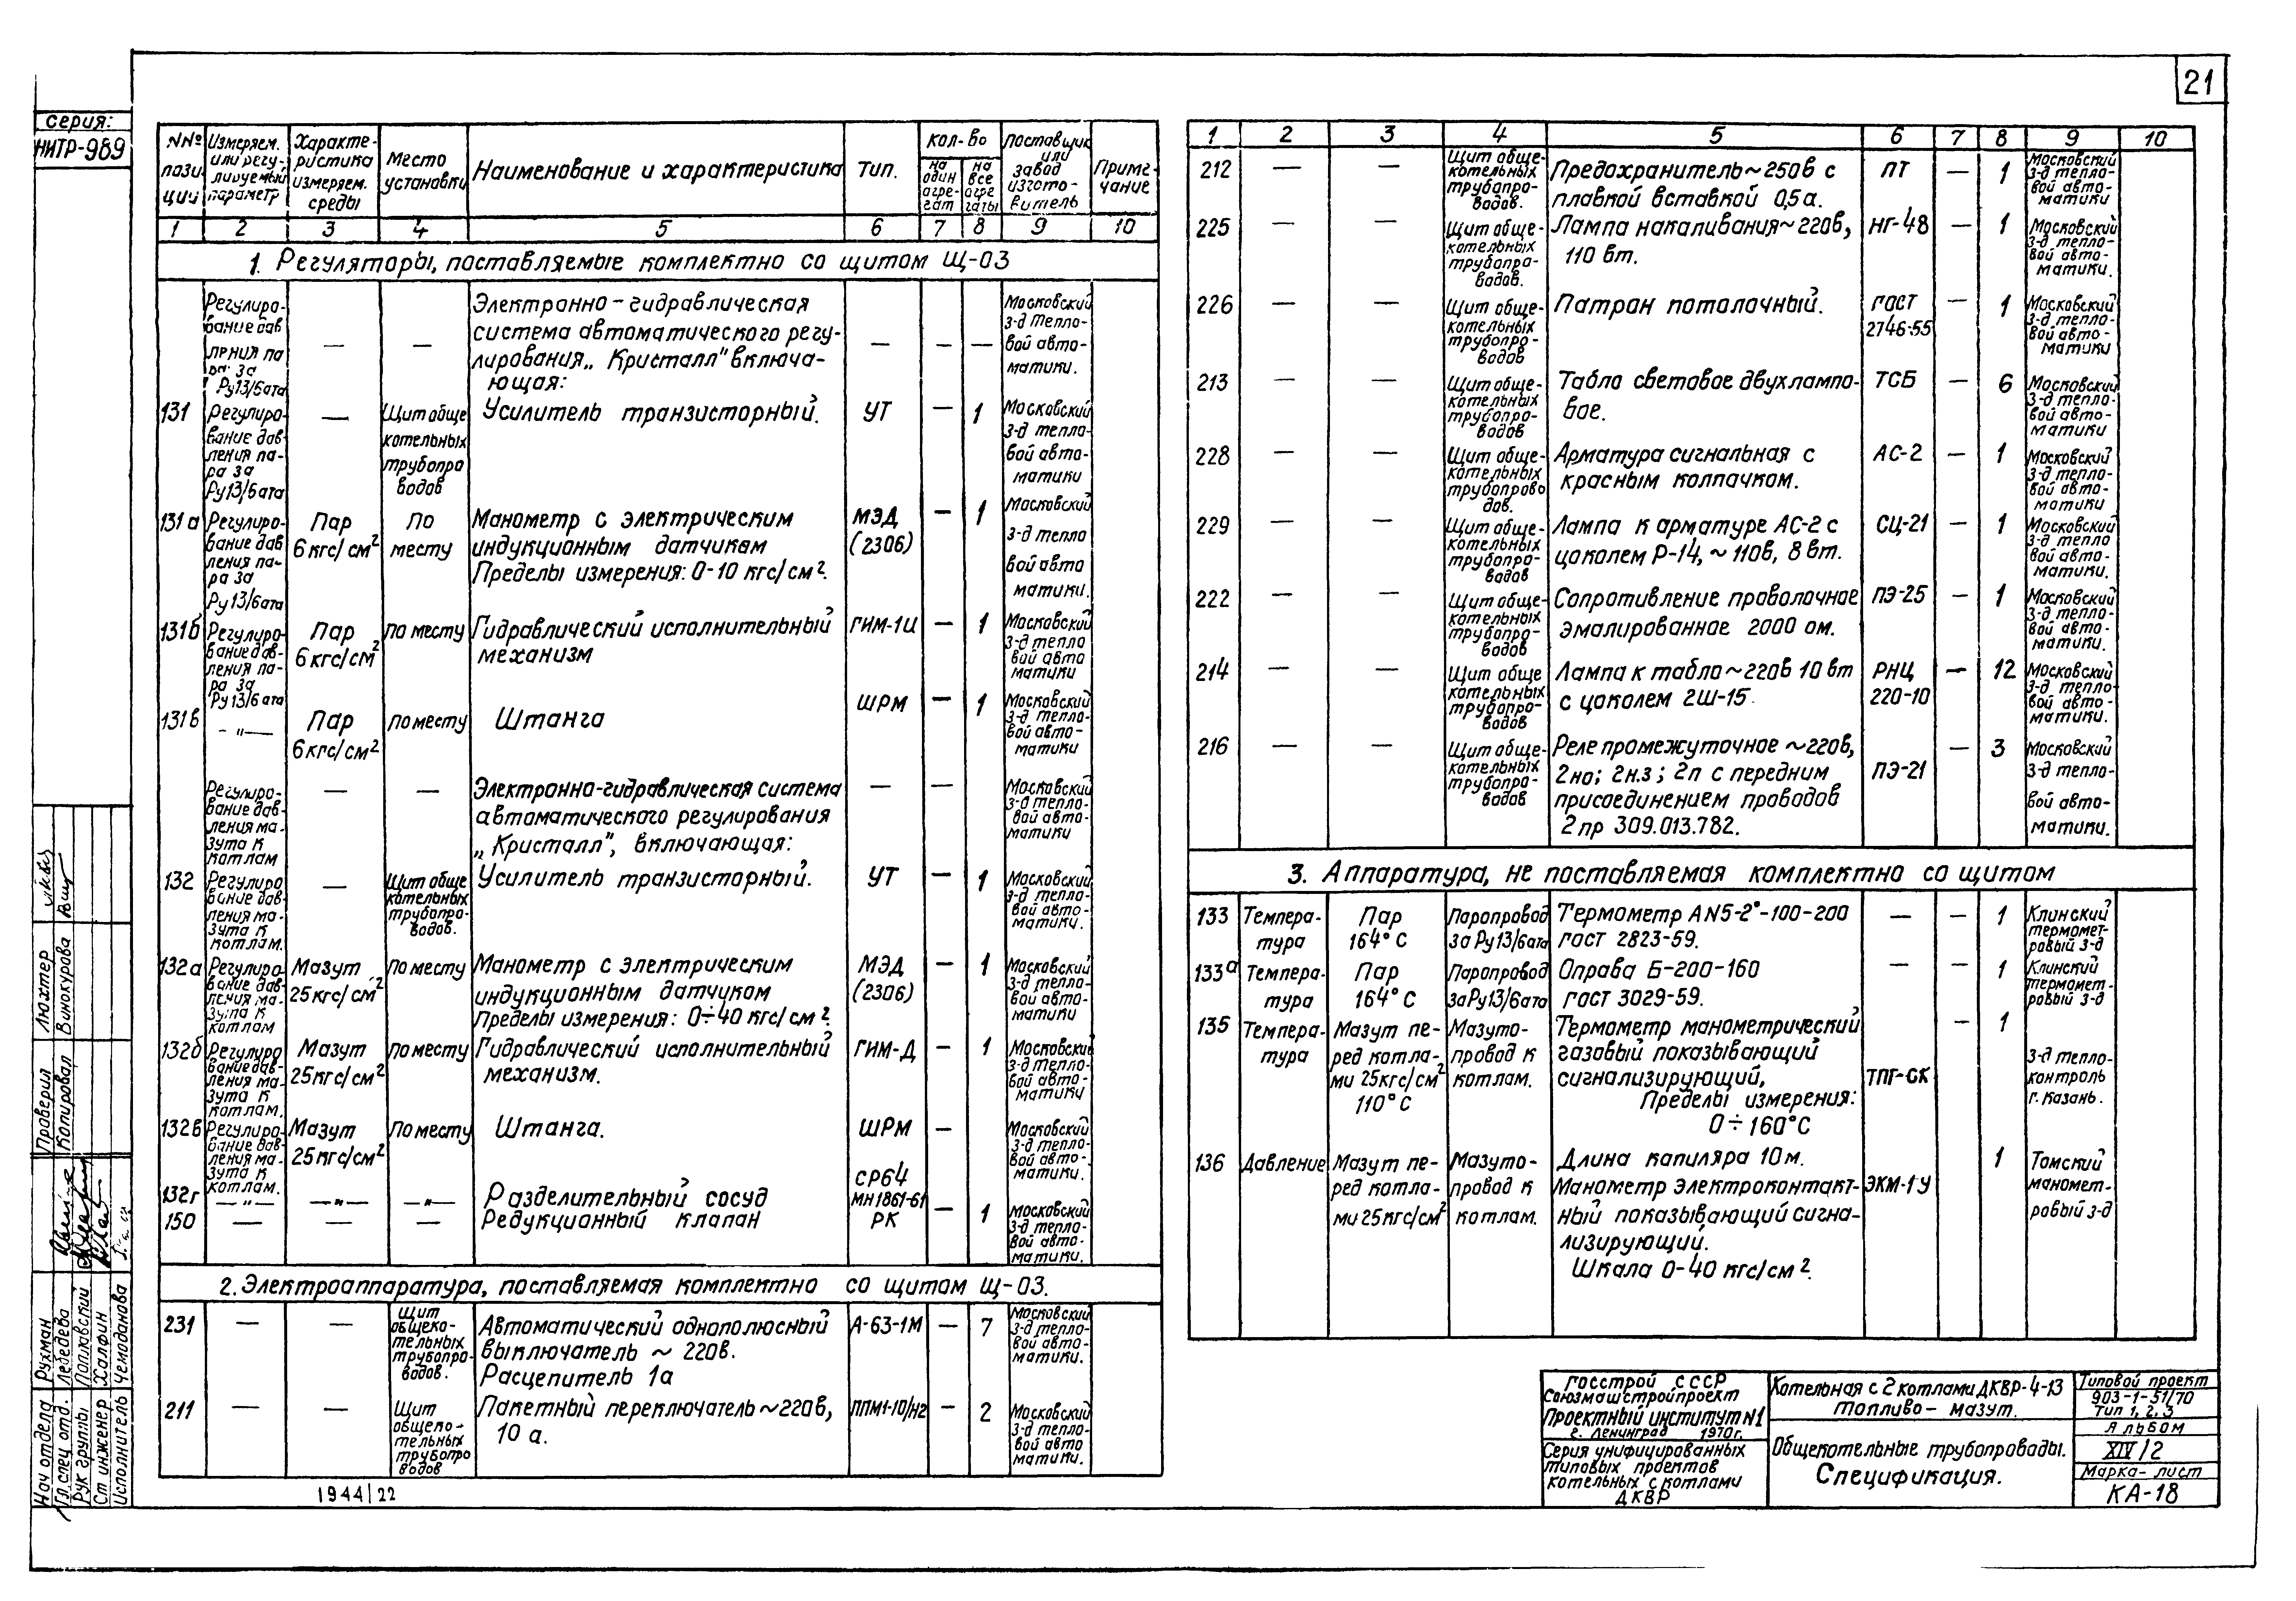 21
серия:
НИТР-989
NN° позиций | Измеряем. или регулируемый параметр | Характеристика измеряем. среды | Место установки | Наименование и характеристика | Тип. | Кол-во на один агрегат | на все агрегаты | Поставщик или завод изготовитель | Примечание
1 2 3 4 5 6 7 8 9 10
1. Регуляторы, поставляемые комплектно со щитом Щ-03
Регулирование давления пара за Ру13/6ата — — Электронно-гидравлическая система автоматического регулирования „Кристалл" включающая: — — — Московский з-д тепловой автоматики.
131 Регулирование давления пара за Ру13/6ата — Щит общекотельных трубопроводов Усилитель транзисторный. УТ — 1 Московский з-д тепловой автоматики
131а Регулирование давления пара за Ру13/6ата Пар 6кгс/см² По месту Манометр с электрическим индукционным датчиком Пределы измерения: 0-10 кгс/см². МЭД (2306) — 1 Московский з-д тепловой автоматики.
131б Регулирование давления пара за Ру13/6ата Пар 6кгс/см² По месту Гидравлический исполнительный механизм ГИМ-1И — 1 Московский з-д тепловой автоматики
131в -"- Пар 6кгс/см² По месту Штанга ШРМ — 1 Московский з-д тепловой автоматики
Регулирование давления мазута к котлам — — Электронно-гидравлическая система автоматического регулирования „Кристалл", включающая: — — Московский з-д тепловой автоматики
132 Регулирование давления мазута к котлам. — Щит общекотельных трубопроводов. Усилитель транзисторный. УТ — 1 Московский з-д тепловой автоматики.
132а Регулирование давления мазута к котлам Мазут 25кгс/см² По месту Манометр с электрическим индукционным датчиком Пределы измерения: 0÷40 кгс/см². МЭД (2306) — 1 Московский з-д тепловой автоматики
132б Регулирование давления мазута к котлам. Мазут 25кгс/см² По месту Гидравлический исполнительный механизм. ГИМ-Д — 1 Московский з-д тепловой автоматики
132в Регулирование давления мазута к котлам. Мазут 25кгс/см² По месту Штанга. ШРМ — Московский з-д тепловой автоматики.
132г —"— —"— —"— Разделительный сосуд СР64 МН1861-61
150 — — — Редукционный клапан РК — 1 Московский з-д тепловой автоматики.
2. Электроаппаратура, поставляемая комплектно со щитом Щ-03.
231 — — Щит общекотельных трубопроводов. Автоматический однополюсный выключатель ~ 220в. Расцепитель 1а А-63-1М — 7 Московский з-д тепловой автоматики.
211 — — Щит общекотельных трубопроводов Пакетный переключатель ~220в, 10 а. ППМ1-10/Н2 — 2 Московский з-д тепловой автоматики.
1944/22
1 2 3 4 5 6 7 8 9 10
212 — — Щит общекотельных трубопроводов. Предохранитель ~250в с плавкой вставкой 0,5а. ПТ — 1 Московский з-д тепловой автоматики
225 — — Щит общекотельных трубопроводов. Лампа накаливания ~220в, 110 вт. НГ-48 — 1 Московский з-д тепловой автоматики.
226 — — Щит общекотельных трубопроводов Патрон потолочный. ГОСТ 2746-55 — 1 Московский з-д тепловой автоматики
213 — — Щит общекотельных трубопроводов Табло световое двухламповое. ТСБ — 6 Московский з-д тепловой автоматики
228 — — Щит общекотельных трубопроводов. Арматура сигнальная с красным колпачком. АС-2 — 1 Московский з-д тепловой автоматики
229 — — Щит общекотельных трубопроводов Лампа к арматуре АС-2 с цоколем Р-14, ~110в, 8вт. СЦ-21 — 1 Московский з-д тепловой автоматики.
222 — — Щит общекотельных трубопроводов Сопротивление проволочное эмалированное 2000 ом. ПЭ-25 — 1 Московский з-д тепловой автоматики.
214 — — Щит общекотельных трубопроводов Лампа к табло ~220в 10 вт с цоколем 2Ш-15. РНЦ 220-10 — 12 Московский з-д тепловой автоматики.
216 — — Щит общекотельных трубопроводов Реле промежуточное ~220в, 2но; 2н.з; 2п с передним присоединением проводов 2пр 309.013.782. ПЭ-21 — 3 Московский з-д тепловой автоматики.
3. Аппаратура, не поставляемая комплектно со щитом
133 Температура Пар 164°С Паропровод за Ру13/6ата Термометр АN5-2°-100-200 гост 2823-59. — — 1 Клинский термометровый з-д
133а Температура Пар 164°С Паропровод за Ру13/6ата Оправа Б-200-160 гост 3029-59. — — 1 Клинский термометровый з-д
135 Температура Мазут перед котлами 25кгс/см² 110°С Мазутопровод к котлам. Термометр манометрический газовый показывающий сигнализирующий, Пределы измерения: 0÷160°С ТПГ-СК — 1 З-д теплоконтроль г. Казань.
136 Давление Мазут перед котлами 25кгс/см² Мазутопровод к котлам. Длина капиляра 10м. Манометр электроконтактный показывающий сигнализирующий. Шкала 0-40 кгс/см². ЭКМ-1У 1 Томский манометровый з-д
Госстрой СССР
Союзмашстройпроект
Проектный институт N1
г. Ленинград 1970г.
Серия унифицированных
типовых проектов
котельных с котлами
ДКВР
Котельная с 2 котлами ДКВР-4-13
топливо - мазут.
Общекотельные трубопроводы.
Спецификация.
Типовой проект
903-1-51/70
Тип 1, 2, 3
Альбом
XIV/2
Марка-лист
КА-18
Проверил Люхтер
Копировал Винокурова
Нач отдела Рухман
Гл.спец отд. Лебедева
Рук группы Поплавский
Ст инженер Халфин
Исполнитель Чемоданова